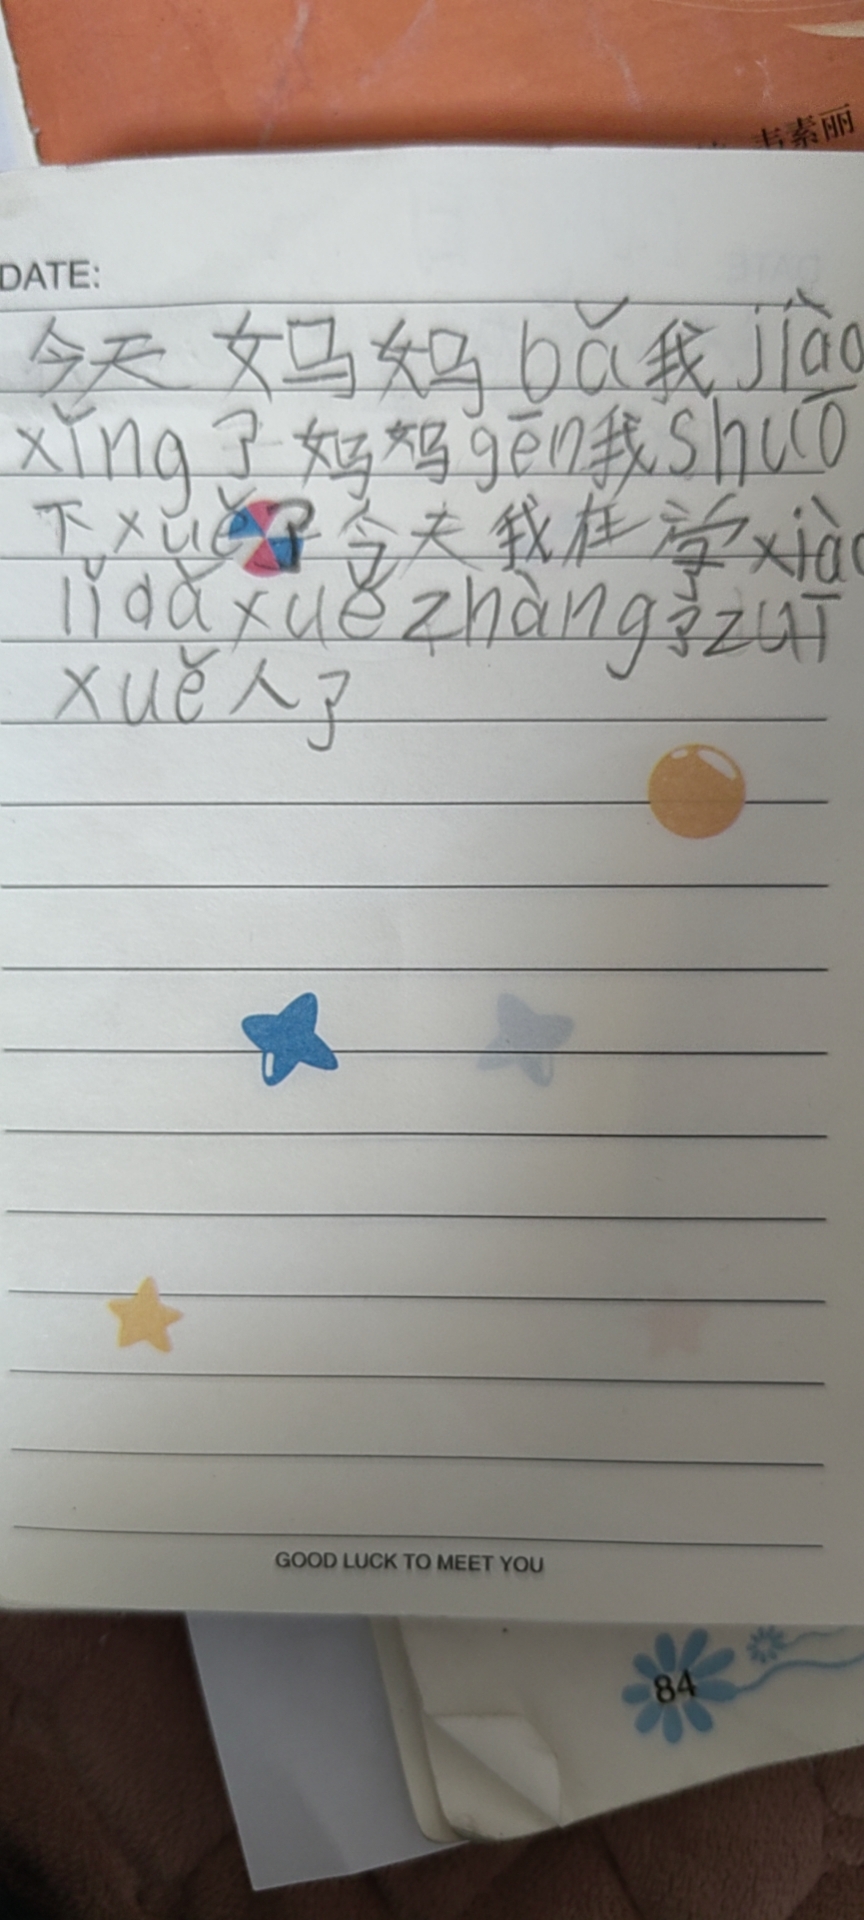 韦素丽
DATE:
今天 妈妈 bǎ 我 jiào
xǐng 了 妈妈 gēn 我 shuō
下 xuě 了 今天 我在 学 xiào
lǐ dǎ xuě zhàng 了 zuī
xuě 人 了
GOOD LUCK TO MEET YOU
84